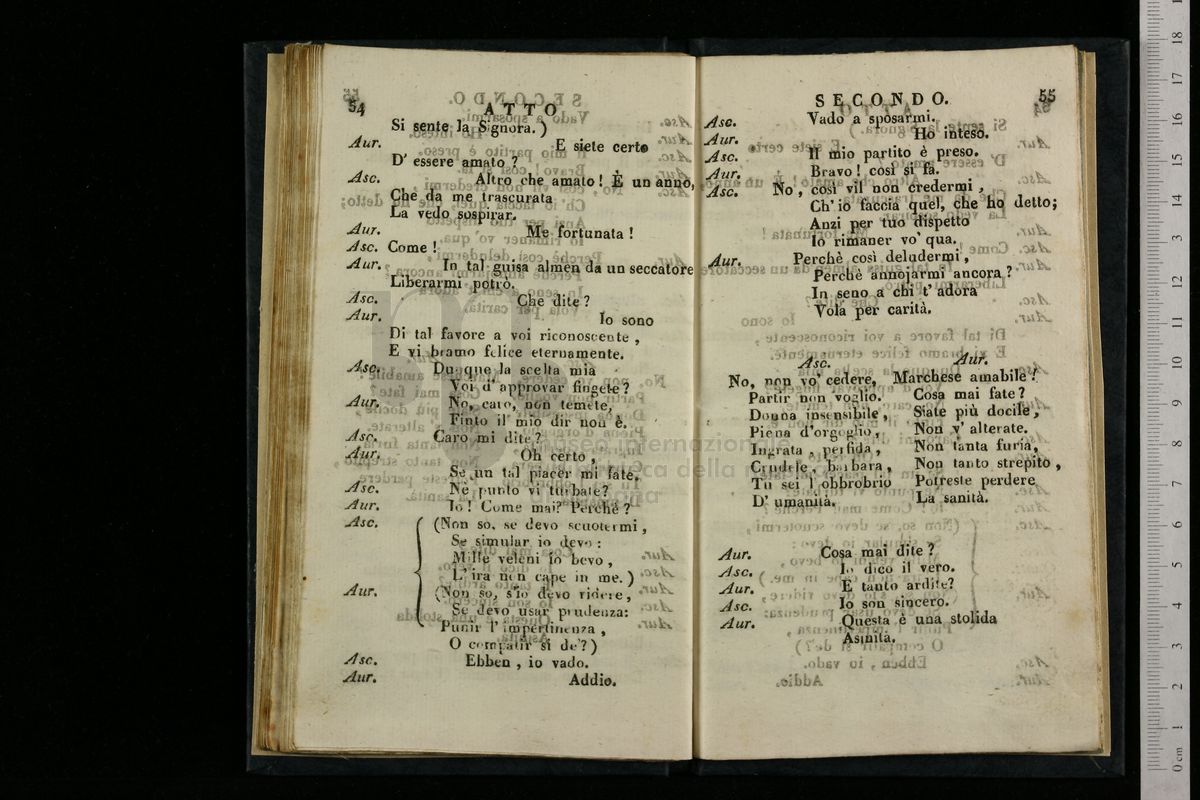 54
ATTO
Si sente la Signora. )
Aur. E siete certo
D' essere amato ?
Asc. Altro che amato ! È un anno,
Che da me trascurata
La vedo sospirar.
Aur. Me fortunata !
Asc. Come !
Aur. In tal guisa almen da un seccatore
Liberarmi potrò.
Asc. Che dite ?
Aur. Io sono
Di tal favore a voi riconoscente ,
E vi bramo felice eternamente.
Asc. Dunque la scelta mia
Voi d' approvar fingete ?
Aur. No, caro, non temete,
Finto il mio dir non è.
Asc. Caro mi dite ?
Aur. Oh certo ,
Se un tal piacer mi fate.
Asc. Nè punto vi turbate?
Aur. Io ! Come mai? Perchè ?
Asc. (Non so, se devo scuotermi ,
Se simular io devo :
Mille veleni io bevo ,
L' ira non cape in me. )
Aur. (Non so, s'io devo ridere,
Se devo usar prudenza:
Punir l' impertinenza ,
O compatir si de' ? )
Asc. Ebben , io vado.
Aur. Addio.
SECONDO. 55
Asc. Vado a sposarmi.
Aur. Ho inteso.
Asc. Il mio partito è preso.
Aur. Bravo ! così si fa.
Asc. No , così vil non credermi ,
Ch' io faccia quel, che ho detto;
Anzi per tuo dispetto
Io rimaner vo' qua.
Aur. Perchè così deludermi ,
Perchè annojarmi ancora ?
In seno a chi t' adora
Vola per carità.
Asc. Aur.
No, non vo' cedere, Marchese amabile !
Partir non voglio. Cosa mai fate ?
Donna insensibile , Siate più docile ,
Piena d'orgoglio , Non v' alterate.
Ingrata , perfida , Non tanta furia,
Crudele, barbara , Non tanto strepito ,
Tu sei l' obbrobrio Potreste perdere
D' umanità. La sanità.
Aur. Cosa mai dite ?
Asc. Io dico il vero.
Aur. E tanto ardite?
Asc. Io son sincero.
Aur. Questa è una stolida
Asinità.
museo internazionale
e biblioteca della musica